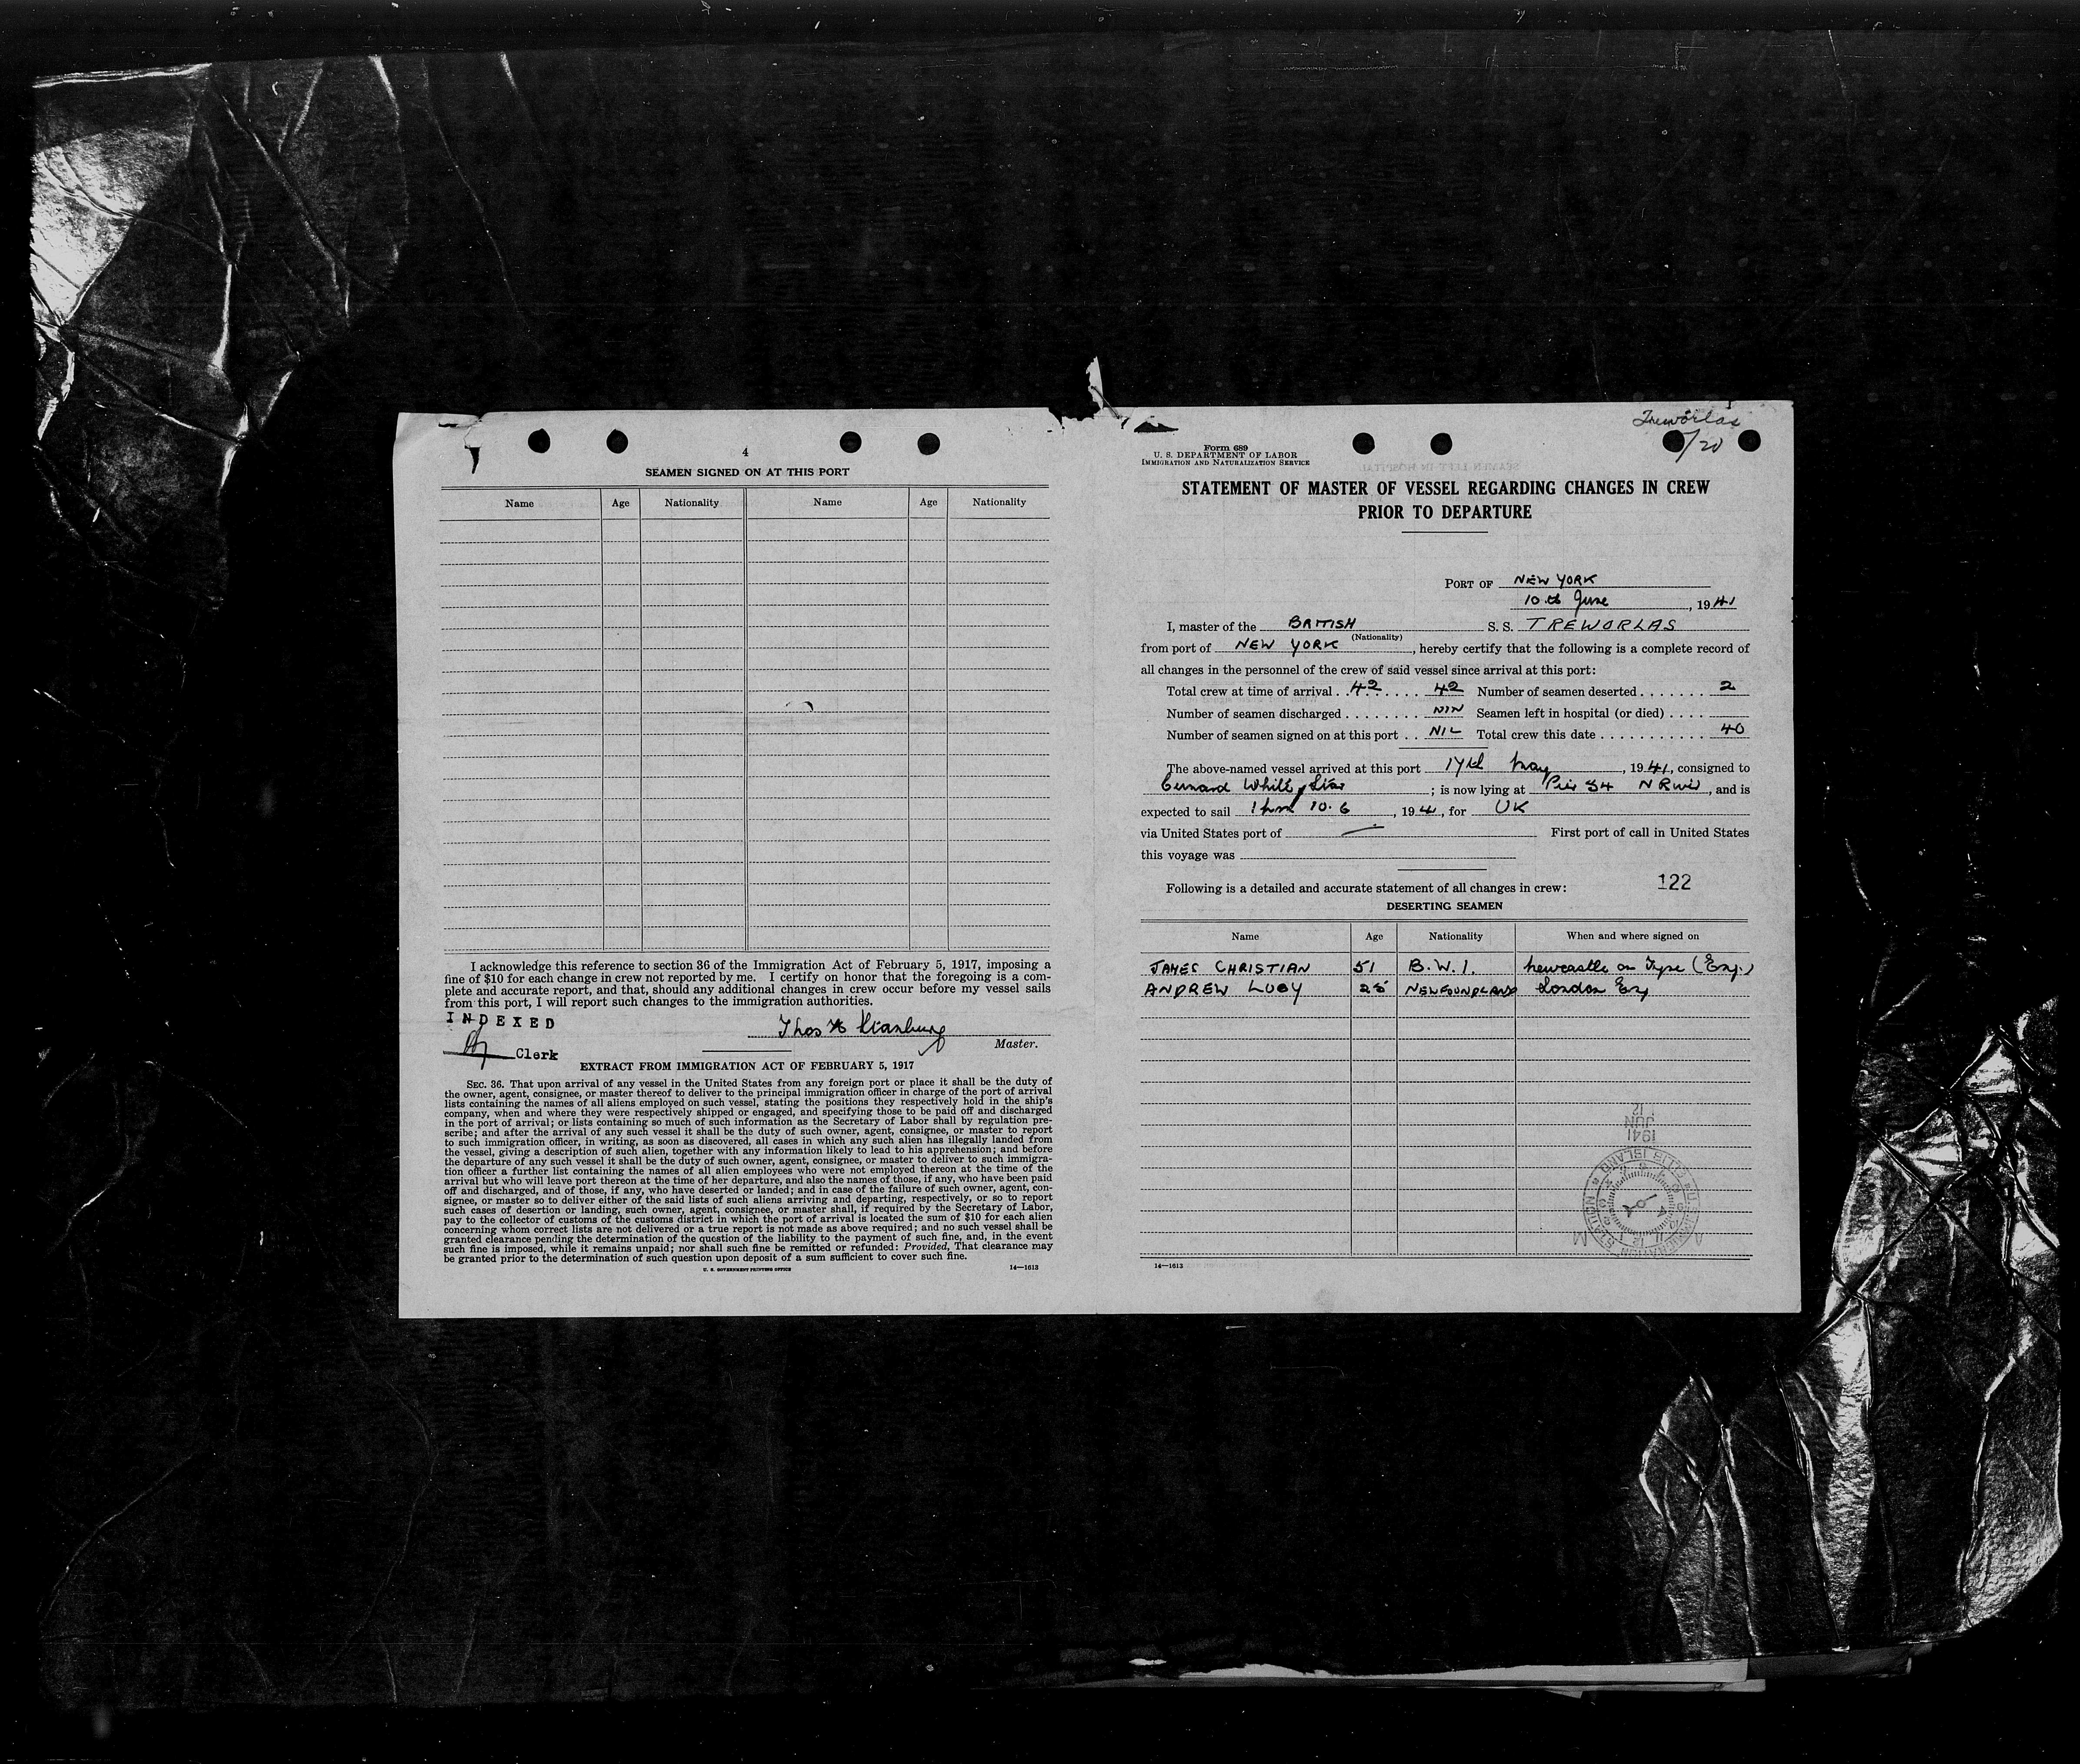 4
SEAMEN SIGNED ON AT THIS PORT
Name Age Nationality Name Age Nationality
I acknowledge this reference to section 36 of the Immigration Act of February 5, 1917, imposing a
fine of $10 for each change in crew not reported by me. I certify on honor that the foregoing is a com-
plete and accurate report, and that, should any additional changes in crew occur before my vessel sails
from this port, I will report such changes to the immigration authorities.
INDEXED
Thos
Clerk
Master.
EXTRACT FROM IMMIGRATION ACT OF FEBRUARY 5, 1917
SEC. 36. That upon arrival of any vessel in the United States from any foreign port or place it shall be the duty of
the owner, agent, consignee, or master thereof to deliver to the principal immigration officer in charge of the port of arrival
lists containing the names of all aliens employed on such vessel, stating the positions they respectively hold in the ship's
company, when and where they were respectively shipped or engaged, and specifying those to be paid off and discharged
in the port of arrival; or lists containing so much of such information as the Secretary of Labor shall by regulation pre-
scribe; and after the arrival of any such vessel it shall be the duty of such owner, agent, consignee, or master to report
to such immigration officer, in writing, as soon as discovered, all cases in which any such alien has illegally landed from
the vessel, giving a description of such alien, together with any information likely to lead to his apprehension; and before
the departure of any such vessel it shall be the duty of such owner, agent, consignee, or master to deliver to such immigra-
tion officer a further list containing the names of all alien employees who were not employed thereon at the time of the
arrival but who will leave port thereon at the time of her departure, and also the names of those, if any, who have been paid
off and discharged, and of those, if any, who have deserted or landed; and in case of the failure of such owner, agent, con-
signee, or master so to deliver either of the said lists of such aliens arriving and departing, respectively, or so to report
such cases of desertion or landing, such owner, agent, consignee, or master shall, if required by the Secretary of Labor,
pay to the collector of customs of the customs district in which the port of arrival is located the sum of $10 for each alien
concerning whom correct lists are not delivered or a true report is not made as above required; and no such vessel shall be
granted clearance pending the determination of the question of the liability to the payment of such fine, and, in the event
such fine is imposed, while it remains unpaid; nor shall such fine be remitted or refunded: Provided, That clearance may
be granted prior to the determination of such question upon deposit of a sum sufficient to cover such fine.
U. S. GOVERNMENT PRINTING OFFICE 14—1613
Treworlas
/20
Form 689
U. S. DEPARTMENT OF LABOR
IMMIGRATION AND NATURALIZATION SERVICE
STATEMENT OF MASTER OF VESSEL REGARDING CHANGES IN CREW
PRIOR TO DEPARTURE
PORT OF NEW YORK
10th June, 1941
I, master of the BRITISH S. S. TREWORLAS
(Nationality)
from port of NEW YORK, hereby certify that the following is a complete record of
all changes in the personnel of the crew of said vessel since arrival at this port:
Total crew at time of arrival . . 42 . . . . 42 Number of seamen deserted . . . . . . . 2
Number of seamen discharged . . . . . . . . Seamen left in hospital (or died) . . . .
Number of seamen signed on at this port . . NIL Total crew this date . . . . . . . . . . . 40
The above-named vessel arrived at this port 17th May, 1941, consigned to
Cunard White Star; is now lying at Pier 54 N River, and is
expected to sail 1 pm 10.6, 1941, for UK
via United States port of — First port of call in United States
this voyage was
Following is a detailed and accurate statement of all changes in crew: 122
DESERTING SEAMEN
Name Age Nationality When and where signed on
JAMES CHRISTIAN 51 B.W.I. Newcastle on Tyne (Eng.)
ANDREW LUBY NEWFOUNDLAND London Eng
12
JUN
1941
ELLIS ISLAND
IMMIGRATION STATION
14—1613